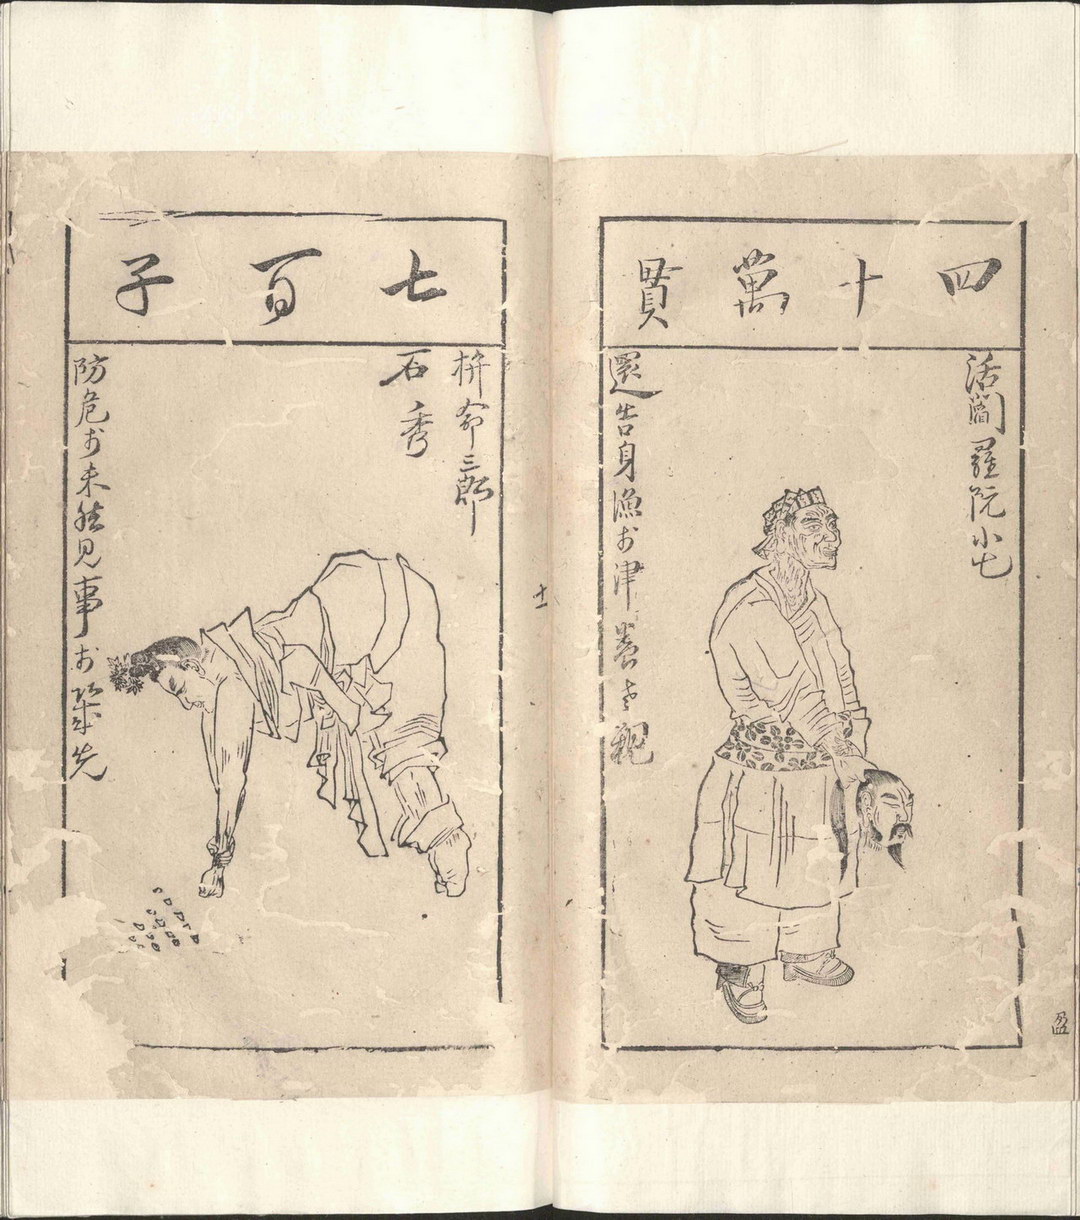 四十萬貫
活閻羅阮小七
還告身漁於津養老親
盈
十一
七百子
拚命三郎
石秀
防危於未然見事於幾先